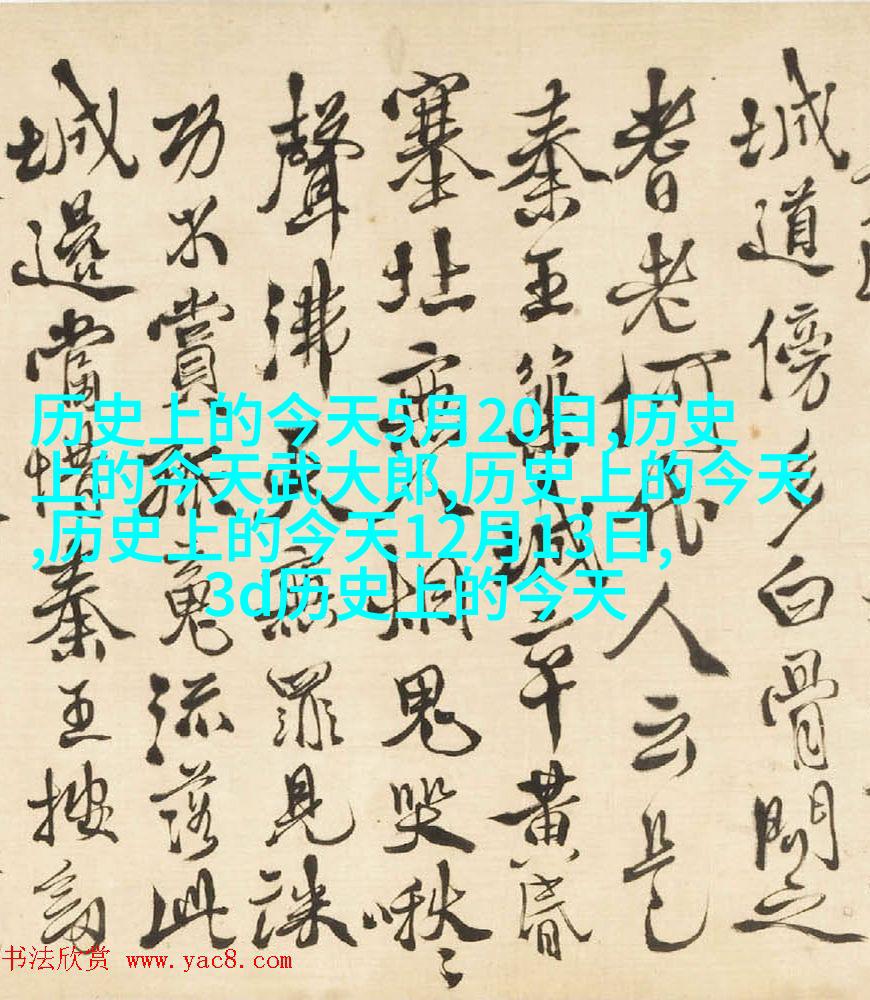 城道傍多白骨問之
耆老何代人云是
秦王築城卒黃昏
塞北無人烟鬼哭啾〻
聲沸天無罪見誅
功不賞孤魂流落此
城邊當惜秦王按劍
历史上的今天5月20日,历史
上的今天武大郎,历史上的今天
,历史上的今天12月13日,
3d历史上的今天
书法欣赏 www.yac8.com